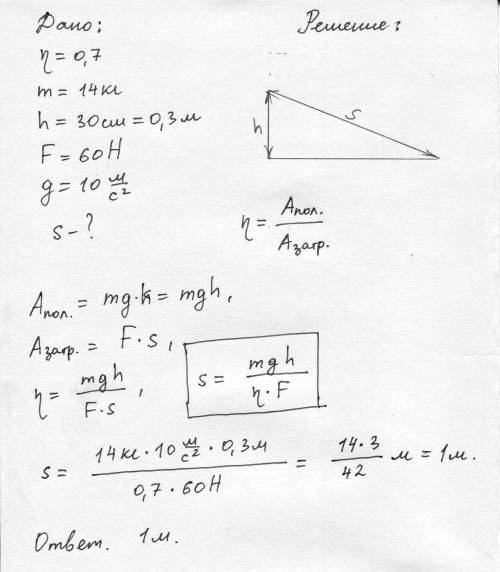 Дано: Решение:
η = 0,7
m = 14 кг
h = 30 см = 0,3 м
F = 60 Н
g = 10 м/с²
s - ?
h
s
η = Aпол. / Aзатр.
Aпол. = mg·h = mgh,
Aзатр. = F·s,
η = mgh / F·s, s = mgh / η·F
s = 14 кг · 10 м/с² · 0,3 м / 0,7 · 60 Н = 14·3 / 42 м = 1 м.
Ответ. 1 м.